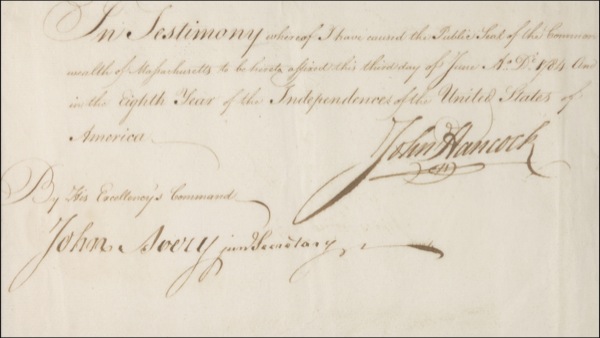 In Testimony whereof I have caused the Public Seal of the Common
wealth of Massachusetts to be hereto affixed this third day of June A. Do. 1784 And
in the Eighth Year of the Independences of the United States of
America
John Hancock
By His Excellency's Command
John Avery junr Secretary